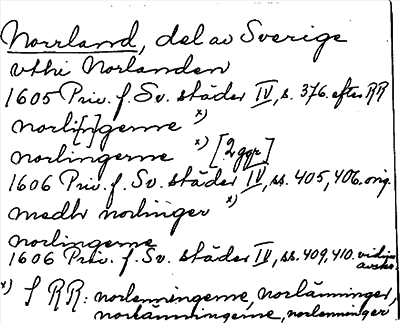 Norrland, del av Sverige
vthi Norlanden
1605 Priv. f. Sv. städer IV, s. 376. efter RR
norli[n]gerne x)
norlingerne x) [2 ggr]
1606 Priv. f. Sv. städer IV, ss. 405, 406. orig.
medh norlinger x)
norlingerne
1606 Priv. f. Sv. städer IV, ss. 409, 410. vidim. avskr.
x) I RR: norlenningerne, norlänninger,
norlänningerne, norlenninger